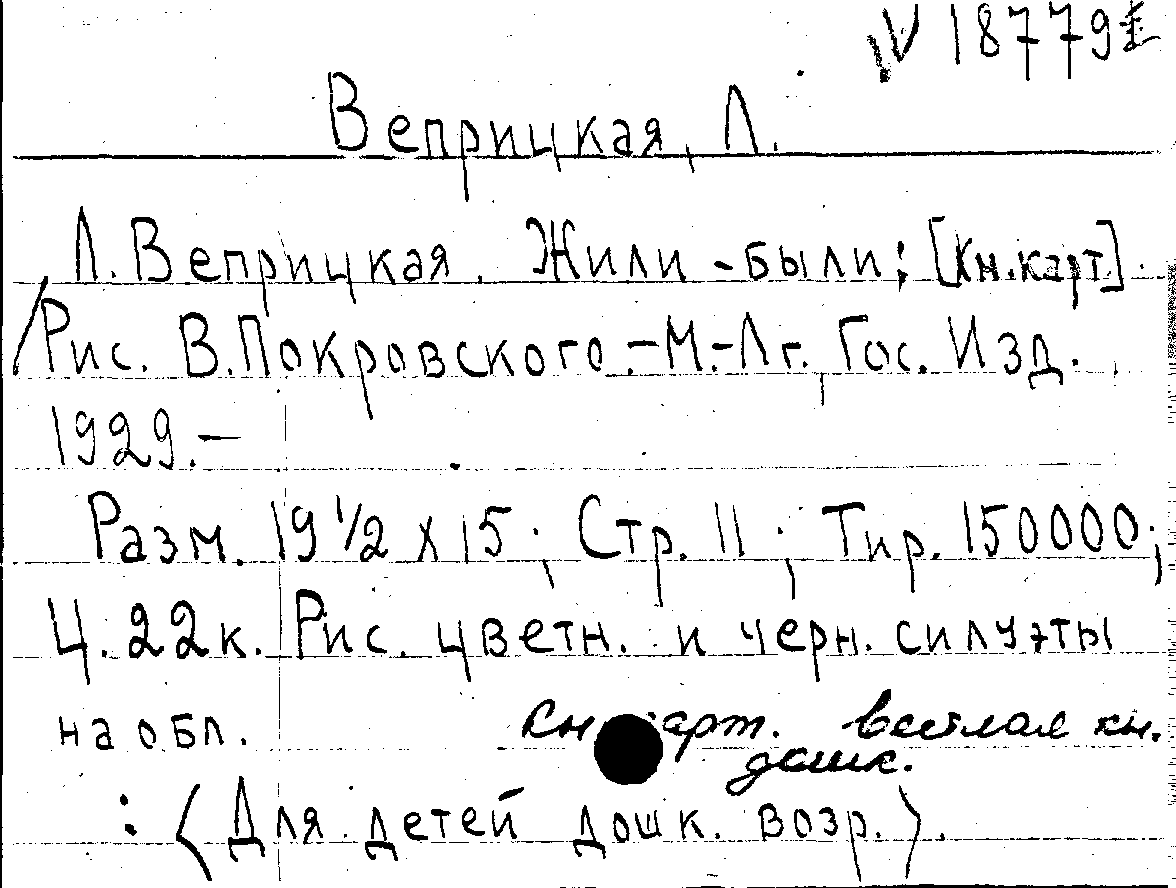 N 18779
Веприцкая, Л.
Л. Веприцкая. Жили-были; [Кн.карт].
/Рис. В.Покровского.-М.-Лг. Гос. Изд.
1929.-
Разм. 19 1/2 х 15; Стр. 11; Тир. 150000;
Ц. 22к. Рис. цветн. и черн. силуэты
на обл. Кн арт. веселая кн.
дошк.
: (Для детей дошк. возр.).